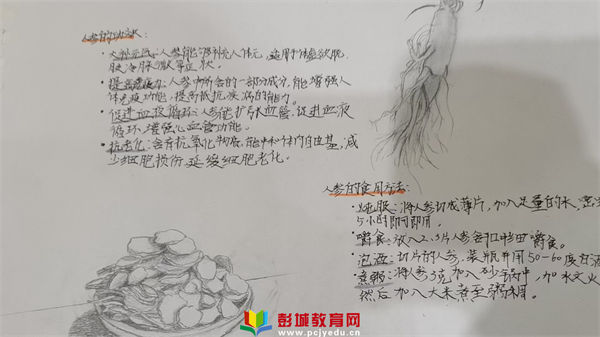 人参的功效:
·大补元气:人参能够补充人体元,适用于体虚欲脱,
肢冷脉微等症状。
·提高免疫力:人参中所含的一部分成分,能增强人
体免疫功能,提高抵抗疾病的能力。
·促进血液循环:人参能扩张血管,促进血液
循环,增强心血管功能。
·抗老化:含有抗氧化物质,能中和体内自由基,减
少细胞损伤,延缓细胞老化。
人参的食用方法:
·炖服:将人参切成薄片,加入足量的水,
5小时即可即用。
·嚼食:放入2、3片人参含口中细嚼食。
·泡酒:切片的人参,装瓶并用50-60度
·煮粥:将人参3克加入砂锅中,加水文火
然后加入大米煮至粥稠。
彭城教育网
www.pcjyedu.cn